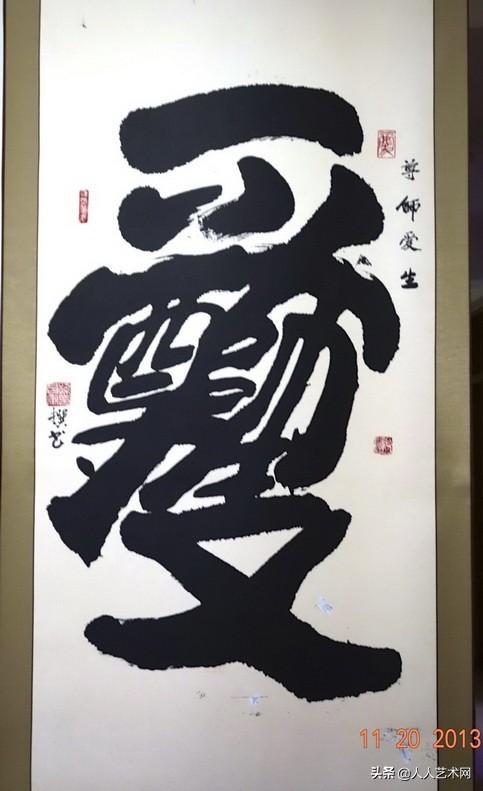 愛
尊師愛生
撰书
11 20 2013
头条 @人人艺术网